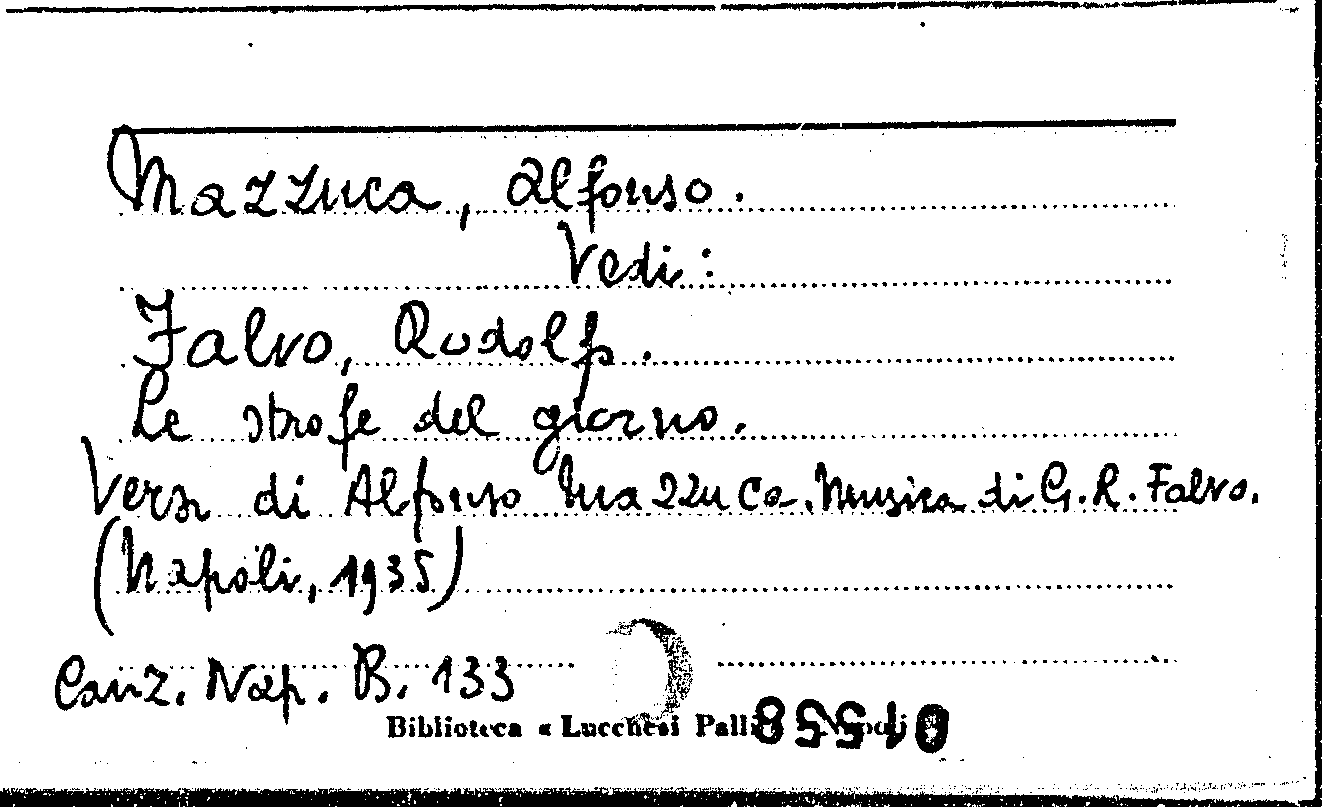 Mazzuca, Alfonso.
Vedi:
Falvo, Rodolfo.
Le strofe del giorno.
Versi di Alfonso Mazzuca. Musica di G. R. Falvo.
(Napoli, 1935)
Canz. Nap. B. 133
Biblioteca « Lucchesi Palli » Napoli
01558